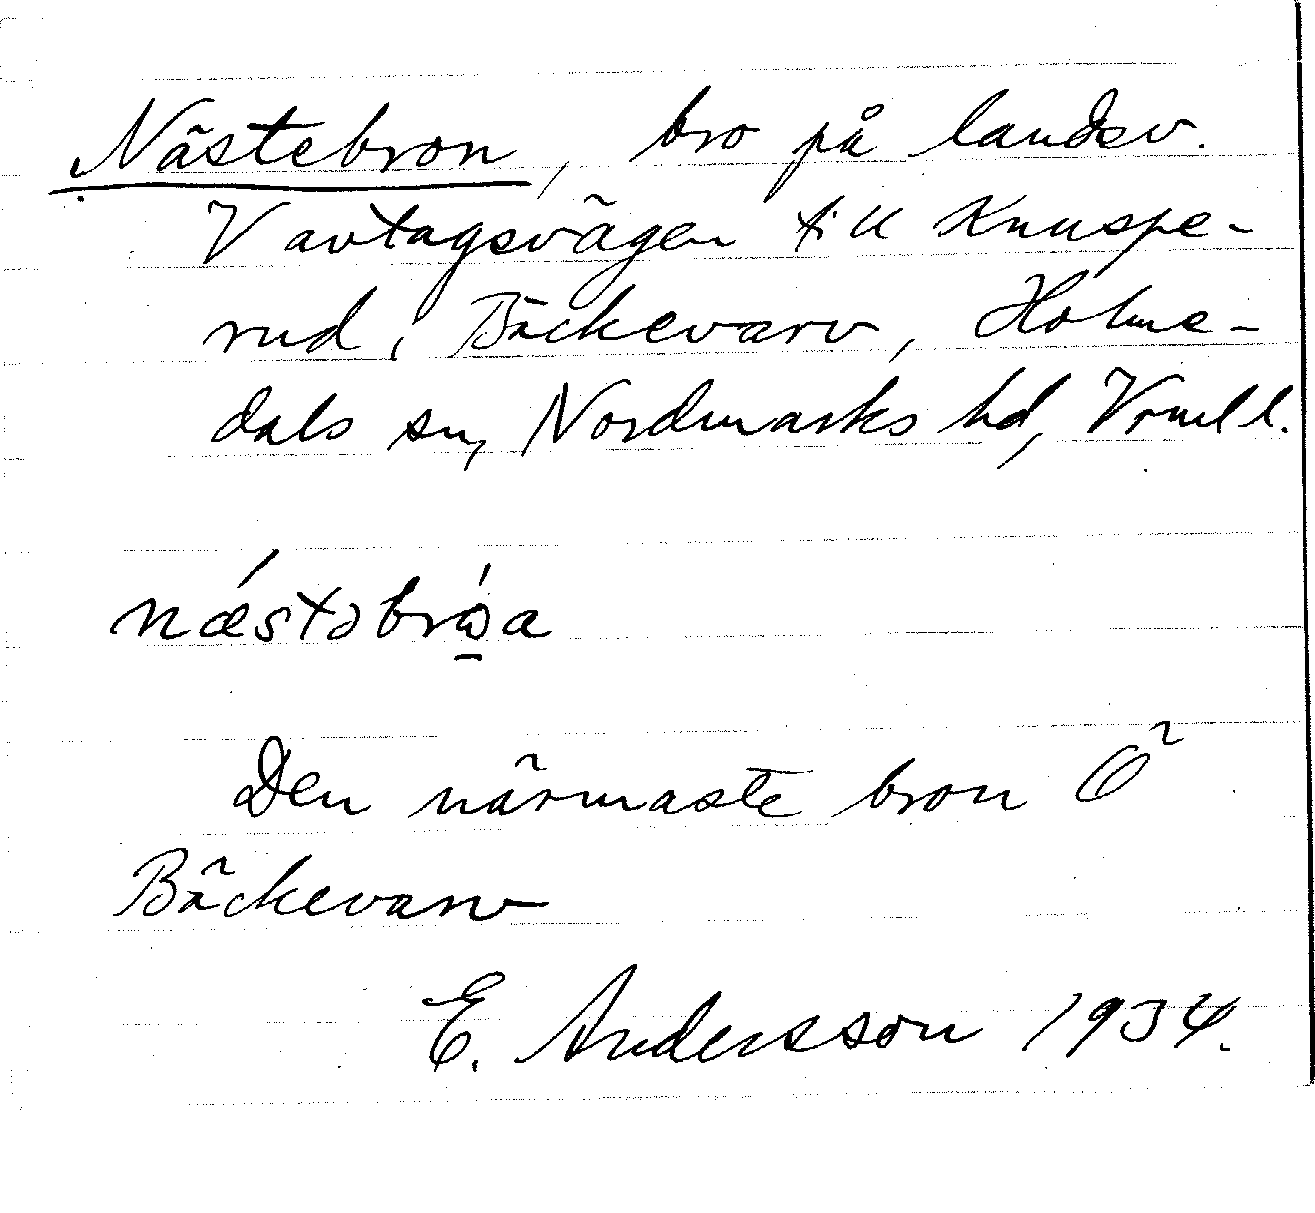 Nästebron, bro på landsv.
V avtagsvägen till Knuspe-
rud, Bäckevarv, Holme-
dals sn, Nordmarks hd, Vrml l.
nǽstəbrώ̣a
Den närmaste bron Ö
Bäckevarv
E. Andersson 1934.